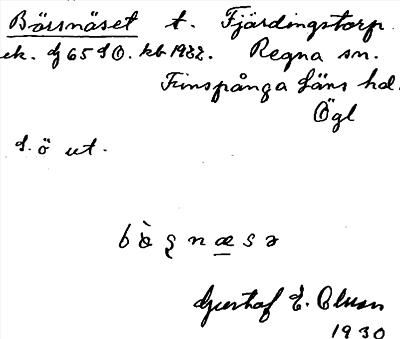 Börsnäset t. Fjärdingstorp.
ek. bf 65 SO. kb 1932. Regna sn.
Finspånga läns hd.
Ögl
s. ö ut.
Gustaf E. Olsson
1930